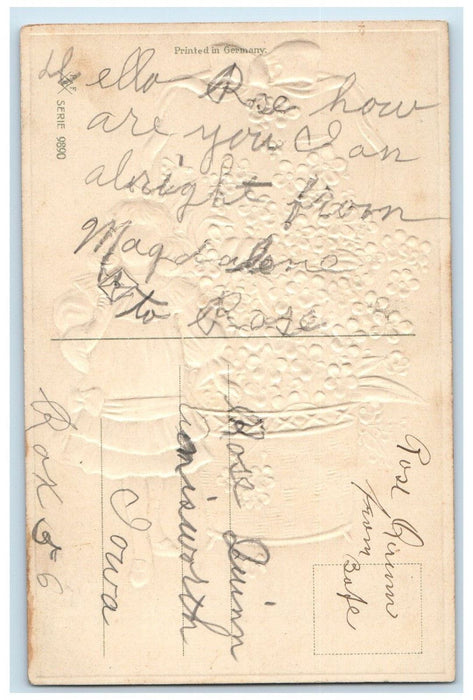 Printed in Germany.
SERIE 9890
Hello Rose how
are you I an
alright from
Magdalene
to Rose
Rose Quinn
Emisworth
Iowa
Box 56
Rose Quinn
from